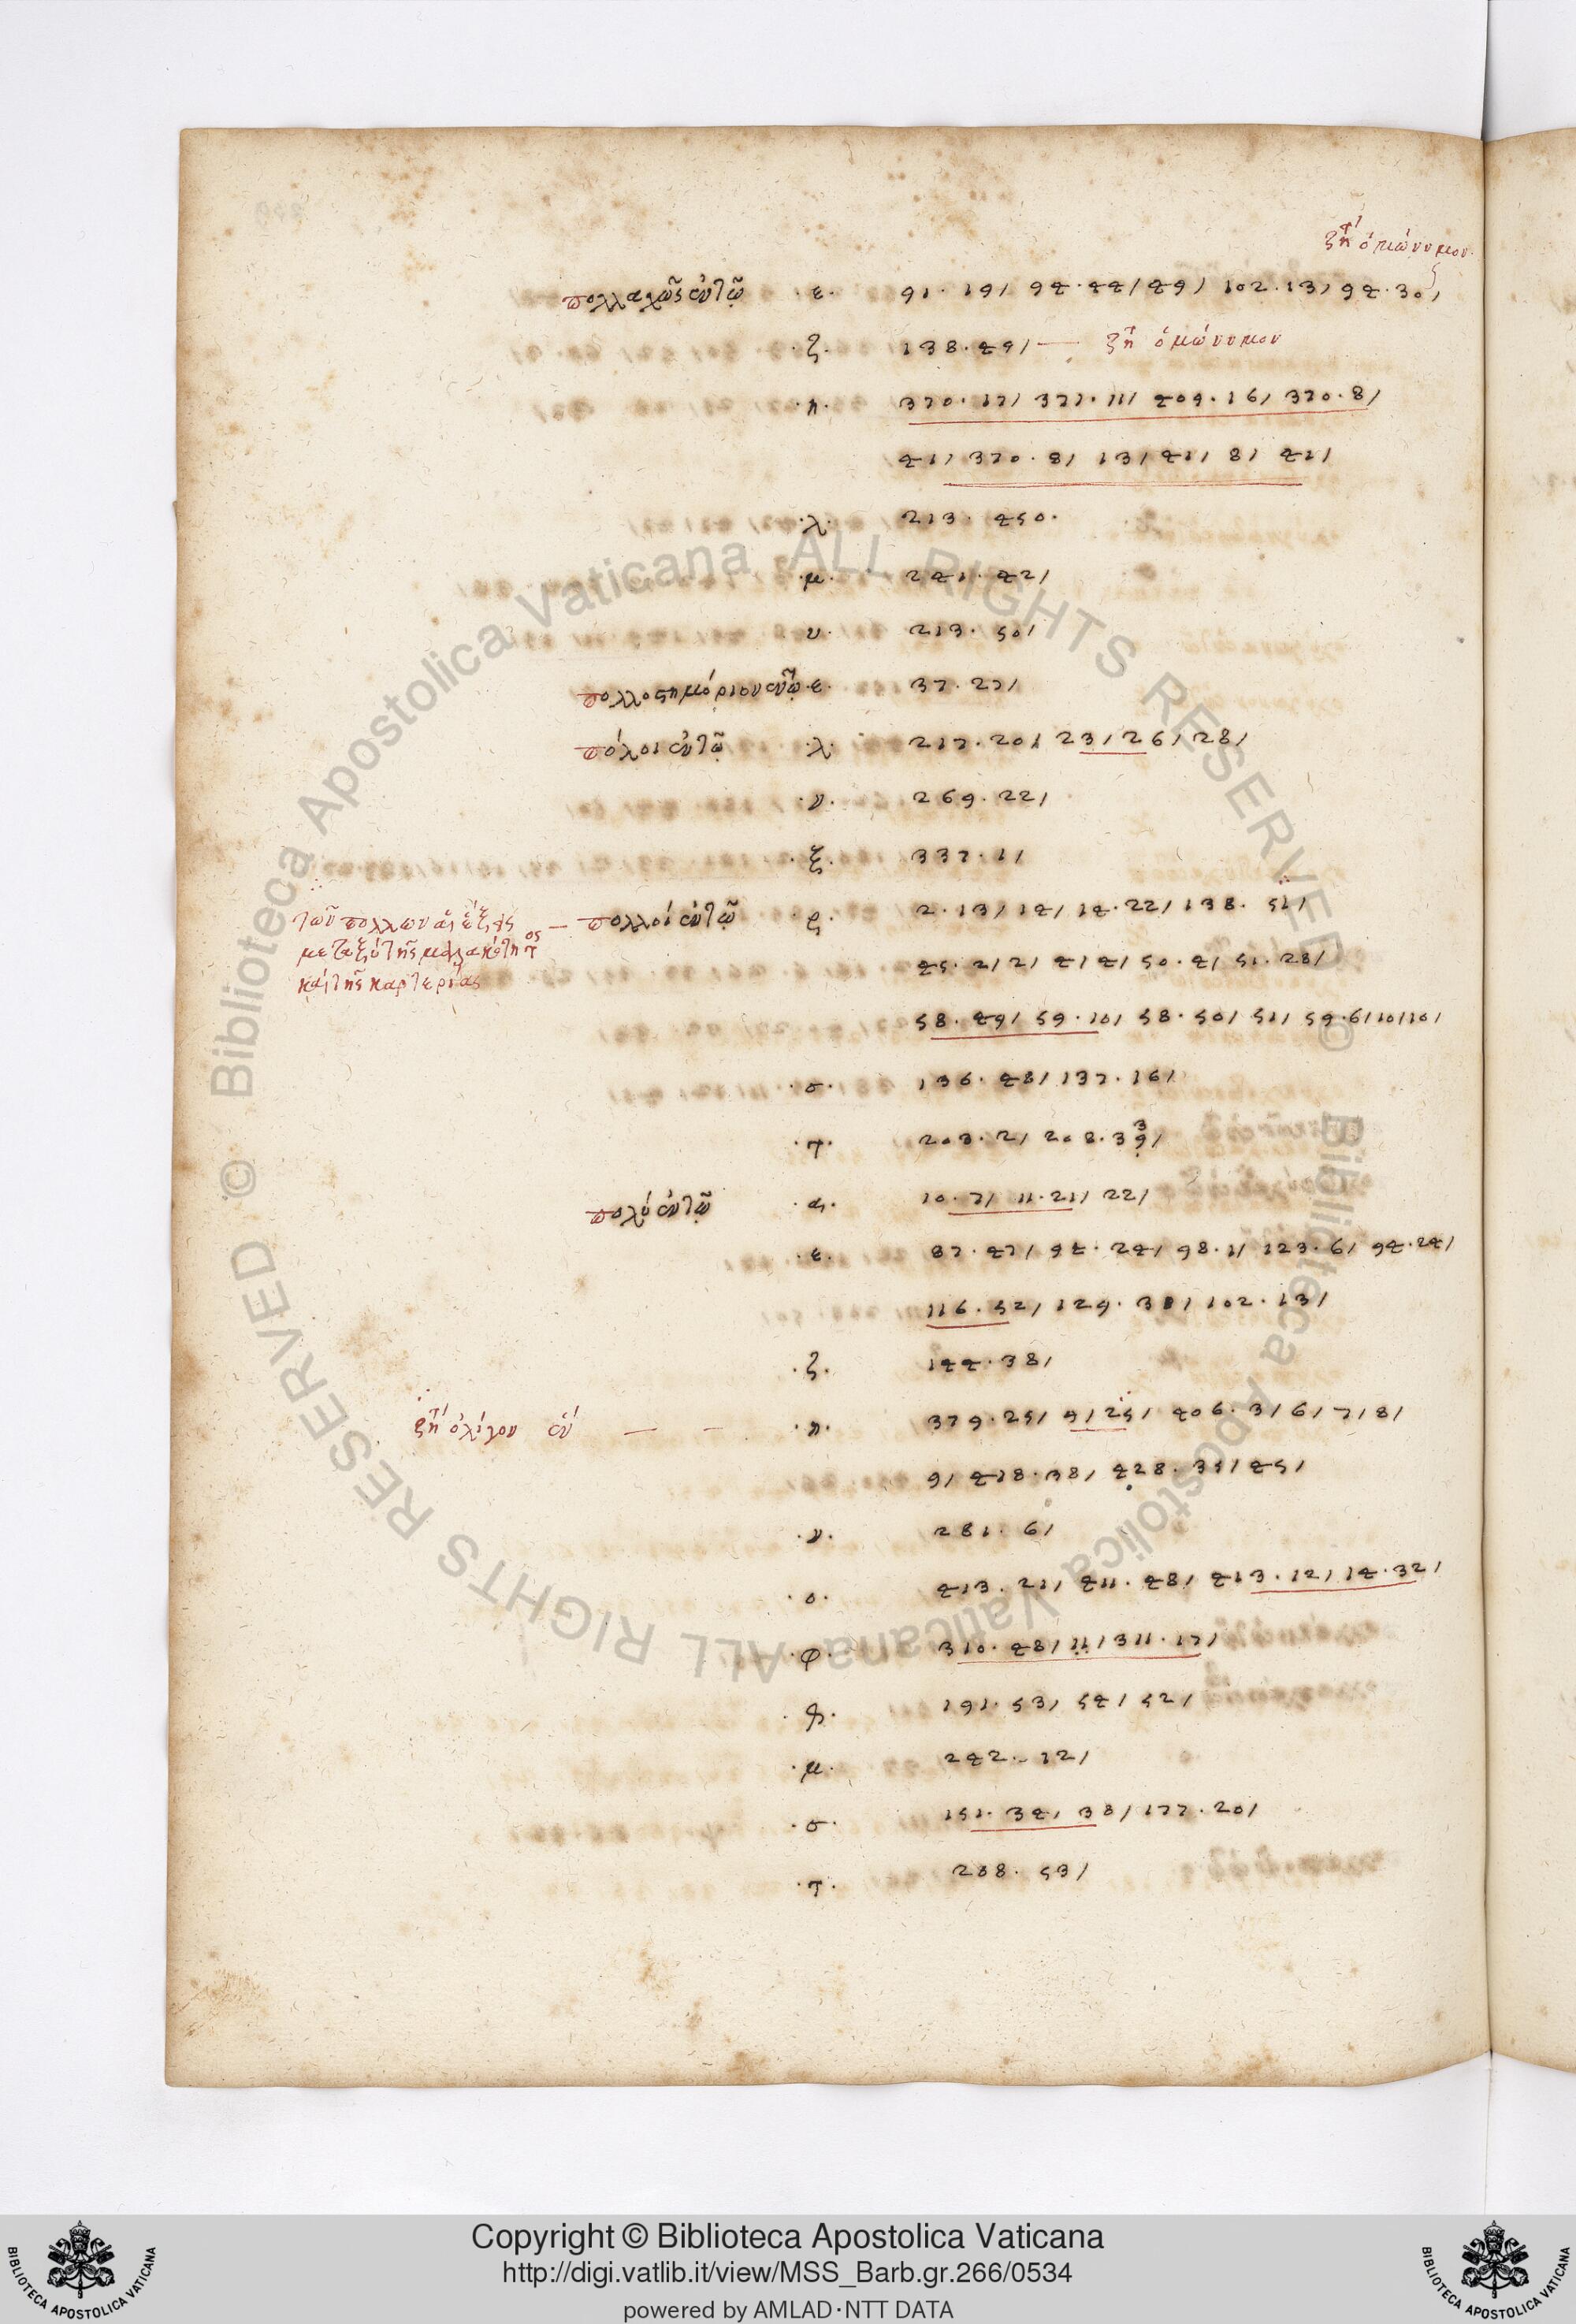 ζη^τ ὁμώνυμον.
πολλαχῶς ἐν τῷ ·ε· 91·19/ 94·44/49/ 102·13/ 94·30/
·ζ· 138·49/ — ζη^τ ὁμώνυμον
·η· 370·17/ 371·11/ 409·16/ 370·8/
41/ 370·8/ 13/41/ 8/ 41/
·λ· 213·450·
·μ· 241·42/
·υ· 213·50/
πολλοστημόριον ἐν τῷ ·ε· 37·27/
πόλοι ἐν τῷ ·λ· 217·20/ 23/26/28/
·ν· 269·22/
·ξ· 337·1/
τῶν πολλων αἱ ἕξεις — πολλοί ἐν τῷ ·ρ· 2·13/14/14·22/138·51/
μεταξὺ τῆς μαλακότητος
45·2/2/4/4/50·4/51·28/
καὶ τῆς καρτερίας
58·49/59·10/58·50/51/59·6/10/10/
·σ· 136·48/137·16/
·τ· 203·2/208·39/ 3
πολύ ἐν τῷ ·α· 10·7/ 11·21/22/
·ε· 87·47/94·24/98·1/123·6/94·24/
116·52/129·38/102·13/
·ζ· 144·38/
ζη^τ ὀλίγον ἐν — — ·η· 379·25/9/25/406·3/6/7/8/
9/418·38/428·35/45/
·ν· 281·6/
·ο· 413·21/411·48/413·12/14·32/
·φ· 310·48/11/311·17/
191·53/54/52/
·μ· 242·12/
·σ· 151·34/38/177·20/
·τ· 208·53/
Copyright © Biblioteca Apostolica Vaticana
http://digi.vatlib.it/view/MSS_Barb.gr.266/0534
powered by AMLAD·NTT DATA
BIBLIOTECA APOSTOLICA VATICANA
BIBLIOTECA APOSTOLICA VATICANA
© Biblioteca Apostolica Vaticana ALL RIGHTS RESERVED
© Biblioteca Apostolica Vaticana ALL RIGHTS RESERVED